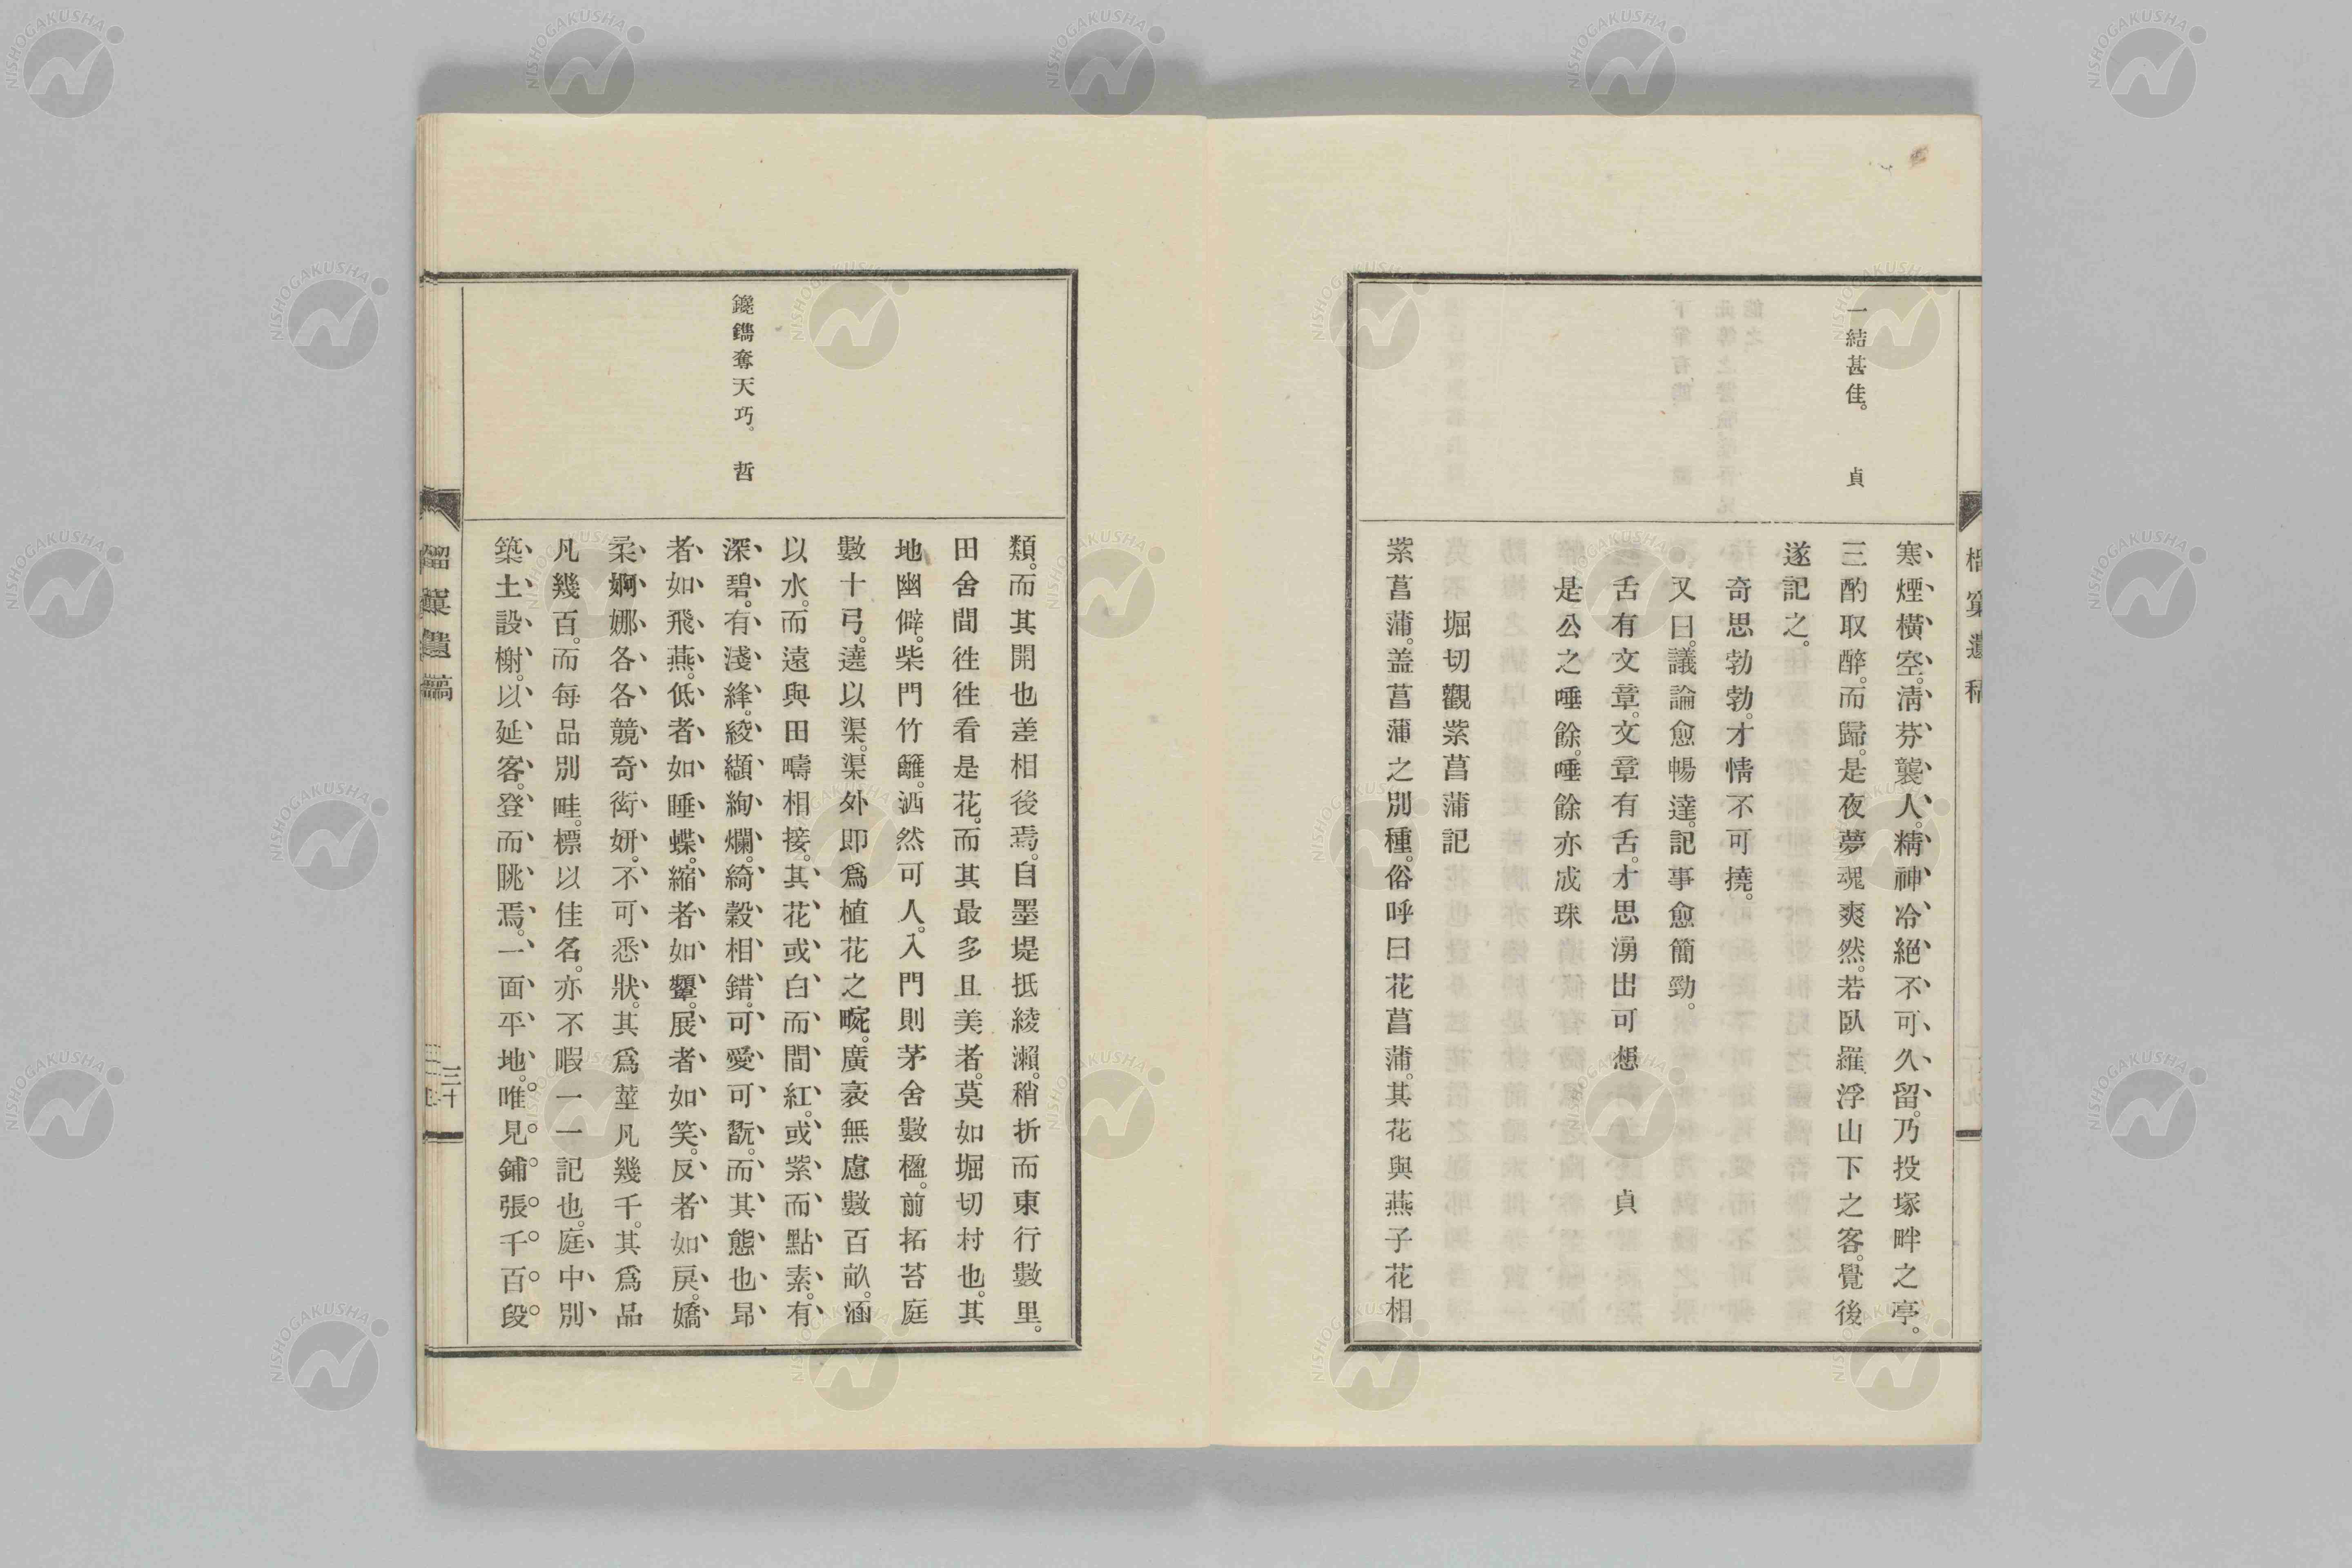 一結甚佳。　貞
寒煙橫空。淸芬襲人。精神冷絕不可久留。乃投塚畔之亭。
三酌取醉。而歸。是夜夢魂爽然。若臥羅浮山下之客。覺後
遂記之。
奇思勃勃。才情不可撓。
又曰。議論愈暢達。記事愈簡勁。
舌有文章。文章有舌。才思湧出可想　貞
是公之唾餘。唾餘亦成珠
堀切觀紫菖蒲記
紫菖蒲。盖菖蒲之別種。俗呼曰花菖蒲。其花與燕子花相
鑱鐫奪天巧。　哲
類。而其開也差相後焉。自墨堤抵綾瀨。稍折而東行數里。
田舍間徃徃看是花。而其最多且美者。莫如堀切村也。其
地幽僻。柴門竹籬。洒然可人。入門則茅舍數楹。前拓苔庭
數十弓。遶以渠。渠外卽爲植花之畹。廣袤無慮數百畝。涵
以水。而遠與田疇相接。其花或白而間紅。或紫而點素。有
深碧。有淺絳。綾纈絢爛。綺縠相錯。可愛可翫。而其態也昻
者如飛燕。低者如睡蝶。縮者如顰。展者如笑。反者如戾。嬌
柔婀娜各各競奇衒姸。不可悉狀。其爲莖凡幾千。其爲品
凡幾百。而每品別畦。標以佳名。亦不暇一一記也。庭中別
築土設榭。以延客。登而眺焉。一面平地。唯見鋪張千百段。
三十